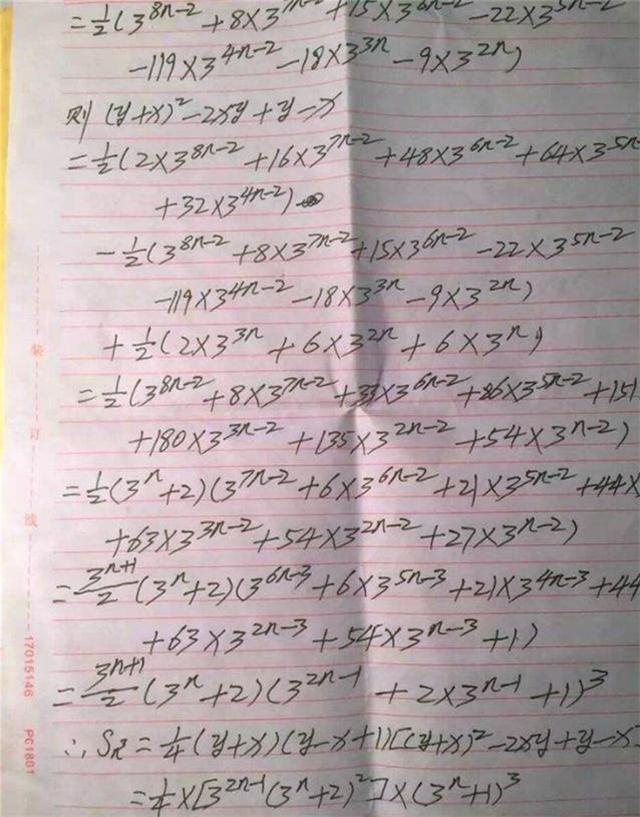 =½(3^{8n-2}+8×3^{7n-2}+15×3^{6n-2}-22×3^{5n-2}
-119×3^{4n-2}-18×3^{3n}-9×3^{2n})
则 (y+x)²-2xy+y-x
=½(2×3^{8n-2}+16×3^{7n-2}+48×3^{6n-2}+64×3^{5n
+32×3^{4n-2})
-½(3^{8n-2}+8×3^{7n-2}+15×3^{6n-2}-22×3^{5n-2}
-119×3^{4n-2}-18×3^{3n}-9×3^{2n})
+½(2×3^{3n}+6×3^{2n}+6×3^{n})
=½(3^{8n-2}+8×3^{7n-2}+33×3^{6n-2}+86×3^{5n-2}+151
+180×3^{3n-2}+135×3^{2n-2}+54×3^{n-2})
=½(3^{n}+2)(3^{7n-2}+6×3^{6n-2}+21×3^{5n-2}+44×
+63×3^{3n-2}+54×3^{2n-2}+27×3^{n-2})
=3^{n+1}/2(3^{n}+2)(3^{6n-3}+6×3^{5n-3}+21×3^{4n-3}+44
+63×3^{2n-3}+54×3^{n-3}+1)
=3^{n+1}/2(3^{n}+2)(3^{2n-1}+2×3^{n-1}+1)³
∴ S_k=¼(y+x)(y-x+1)[(y+x)²-2xy+y-x]
=¼×[3^{2n-1}(3^{n}+2)²]×(3^{n}+1)³
装
订
线
17015146 PC1801